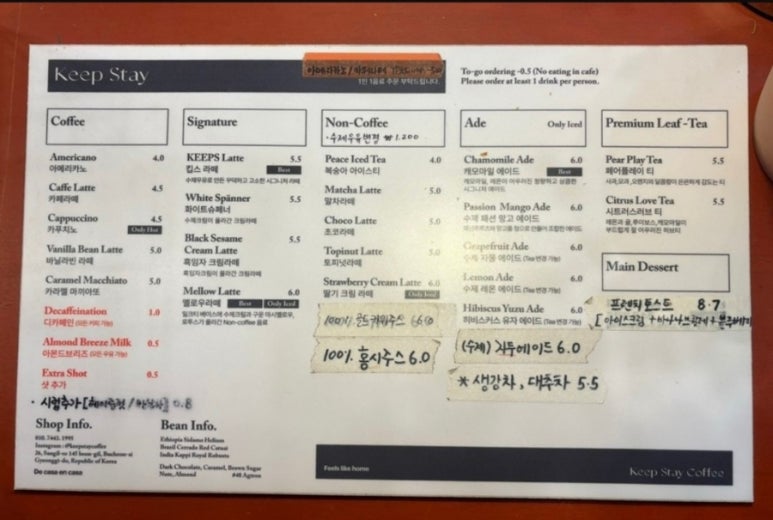 Keep Stay
1인 1음료 주문 부탁드립니다.
To-go ordering -0.5 (No eating in cafe)
Please order at least 1 drink per person.
Coffee
Americano 4.0
아메리카노
Caffe Latte 4.5
카페라떼
Cappuccino 4.5
카푸치노 Only Hot
Vanilla Bean Latte 5.0
바닐라빈 라떼
Caramel Macchiato 5.0
카라멜 마끼아또
Decaffeination 1.0
디카페인 (모든 커피 가능)
Almond Breeze Milk 0.5
아몬드브리즈 (모든 우유 가능)
Extra Shot 0.5
샷 추가
· 시럽추가 0.8
Signature
KEEPS Latte 5.5
킵스 라떼 Best
White Spänner 5.5
화이트슈페너
수제크림이 올라간 크림라떼
Black Sesame Cream Latte 5.5
흑임자 크림라떼
흑임자크림이 올라간 라떼
Mellow Latte
멜로우라떼 Best Only Iced
밀크티 베이스에 수제크림과 구운 마시멜로우,
로투스가 올라간 Non-coffee 음료
Non-Coffee
· 수제우유변경 ₩1,200
Peace Iced Tea 4.0
복숭아 아이스티
Matcha Latte 5.0
말차라떼
Choco Latte 5.0
초코라떼
Topinut Latte 5.0
토피넛라떼
Strawberry Cream Latte 6.0
딸기 크림 라떼 Only Iced
100% 골드키위주스 6.0
100% 홍시주스 6.0
Ade Only Iced
Chamomile Ade 6.0
캐모마일 에이드 Best
캐모마일, 레몬이 어우러진 향향하고 상큼한
시그니처 에이드
Passion Mango Ade 6.0
수제 패션 망고 에이드
Grapefruit Ade 6.0
수제 자몽 에이드 (Tea 변경 가능)
Lemon Ade 6.0
수제 레몬 에이드 (Tea 변경 가능)
Hibiscus Yuzu Ade 6.0
히비스커스 유자 에이드 (Tea 변경 가능)
(수제) 자두에이드 6.0
* 생강차, 대추차 5.5
Premium Leaf -Tea
Pear Play Tea 5.5
페어플레이 티
사과,모과,오렌지의 달콤함이 은은하게 감도는 티
Citrus Love Tea 5.5
시트러스러브 티
레몬과 귤,루이보스,캐모마일이
부드럽게 잘 어우러진 허브티
Main Dessert
프렌치토스트 8.7
[아이스크림 + 바나나브륄레 +
Shop Info.
010. 7442. 1995
Instagram : @keepstaycoffee
26, Songil-ro 145 beon-gil, Bucheon-si
Gyeonggi-do, Republic of Korea
De casa en casa
Bean Info.
Ethiopia Sidamo Helium
Brazil Cerrado Red Catuai
India Kappi Royal Robusta
Dark Chocolate, Caramel, Brown Sugar
Nute, Almond #48 Agtron
Feels like home
Keep Stay Coffee